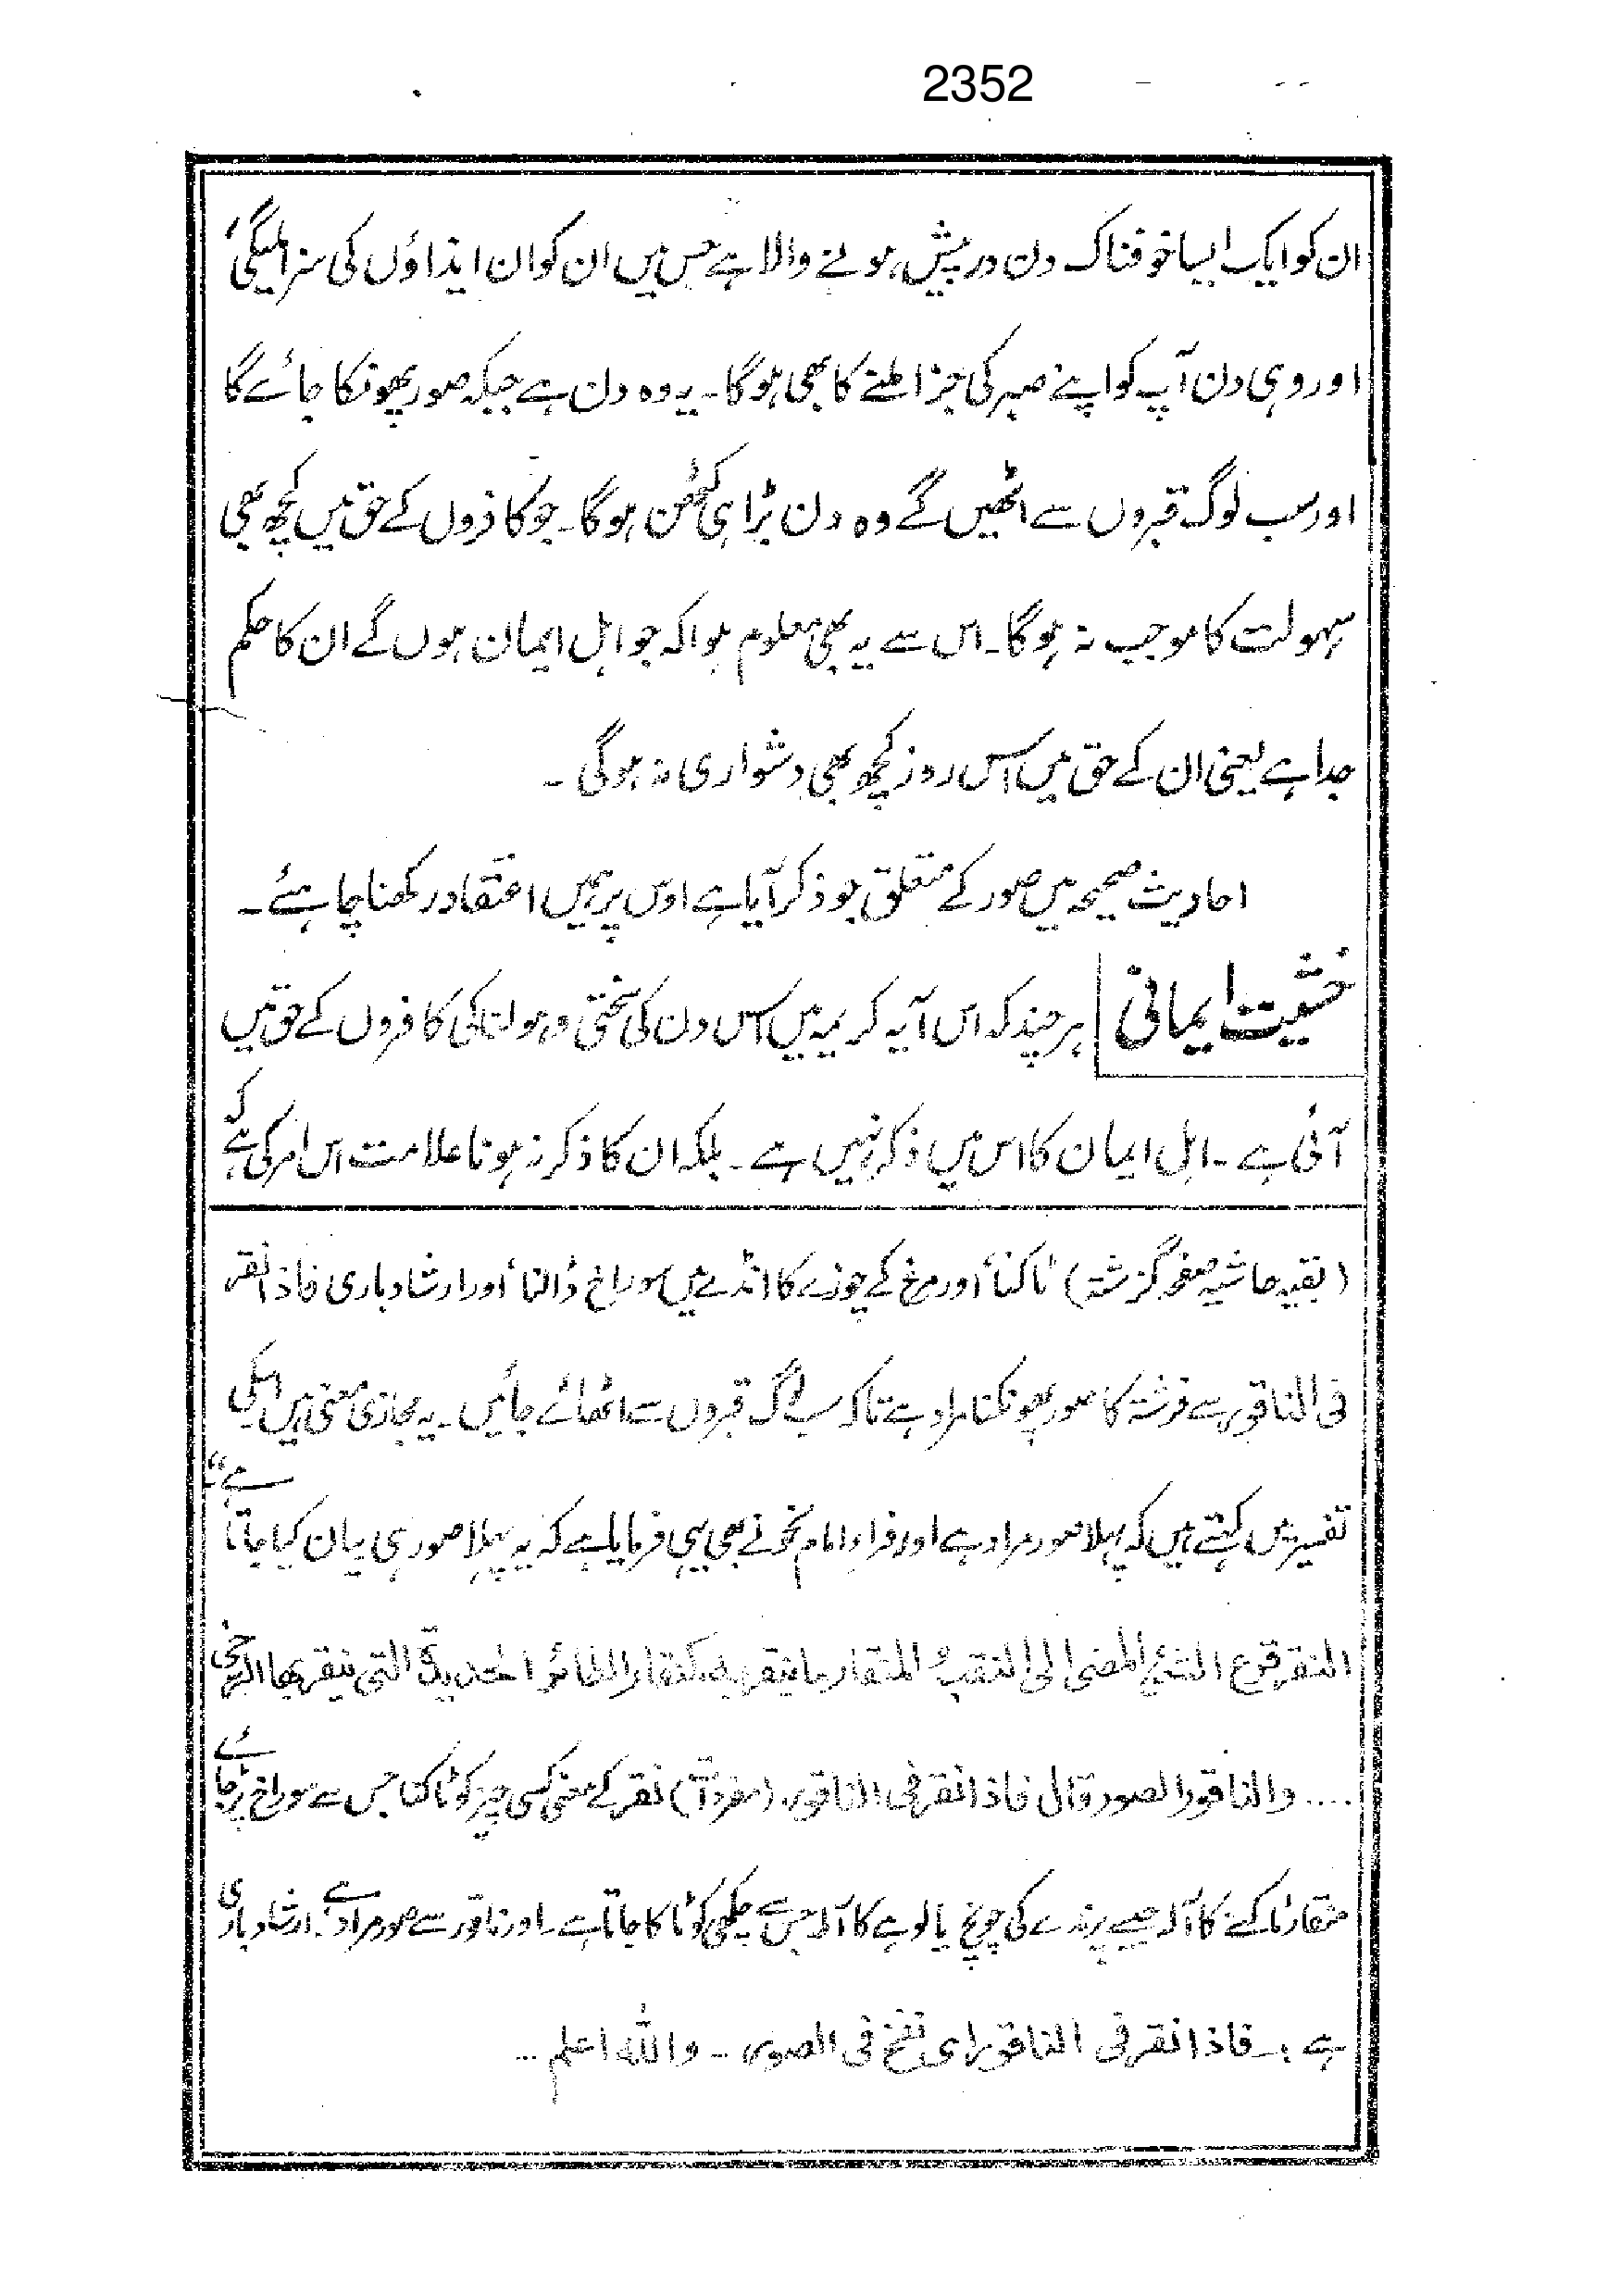 2352
ان کو ایک ایسا خوفناک دن درپیش ہونے والا ہے جس میں ان کو ان ایذاؤں کی سزا ملیگی،
اور وہی دن آپ کو اپنے صبر کی جزا ملنے کا بھی ہوگا۔ یہ وہ دن ہے جبکہ صور پھونکا جائے گا
اور سب لوگ قبروں سے اٹھیں گے وہ دن بڑا ہی کٹھن ہوگا۔ جو کافروں کے حق میں کچھ بھی
سہولت کا موجب نہ ہوگا۔ اس سے یہ بھی معلوم ہوا کہ جو اہل ایمان ہوں گے ان کا حکم
جدا ہے یعنی ان کے حق میں اس روز کچھ بھی دشواری نہ ہوگی ۔
احادیث صحیحہ میں صور کے متعلق جو ذکر آیا ہے اوس پر ہمیں اعتقاد رکھنا چاہئے ۔
خشیت ایمانی ہر چند کہ اس آیہ کریمہ میں اس دن کی سختی و ہولناکی کافروں کے حق میں
آئی ہے ۔ اہل ایمان کا اس میں ذکر نہیں ہے ۔ بلکہ ان کا ذکر نہ ہونا علامت اس امر کی ہے کہ
(بقیہ حاشیہ صفحہ گزشتہ) ٹاکنا اور مرغ کے چوزے کا انڈے میں سوراخ ڈالنا اور ارشاد باری فاذا نقر
فی الناقور سے فرشتہ کا صور پھونکنا مراد ہے تاکہ سب لوگ قبروں سے اٹھائے جائیں ۔ یہ مجازی معنی ہیں اسکی
تفسیر میں کہتے ہیں کہ پہلا صور مراد ہے اور فراء امام نحو نے بھی یہی فرمایا ہے کہ یہ پہلا صور ہی بیان کیا جاتا ہے“
النقر قرع الشئ المفضی الی النقب و المنقار ما ینقر بہ کمنقار الطائر الحدیدۃ التی ینقر بھا الرحی
.... والناقور الصور قال فاذا نقر فی الناقور، (مفردات) نقر کے معنی کسی چیز کو ٹاکنا جس سے سوراخ پڑ جائے
منقار ٹاکنے کا آلہ جیسے پرندے کی چونچ یا لوہے کا آلہ جس سے چکی کو ٹاکا جاتا ہے ۔ اور ناقور سے صور مراد ہے۔ ارشاد باری
ہے :۔ فاذا نقر فی الناقور ای نفخ فی الصور ۔ واللہ اعلم ...